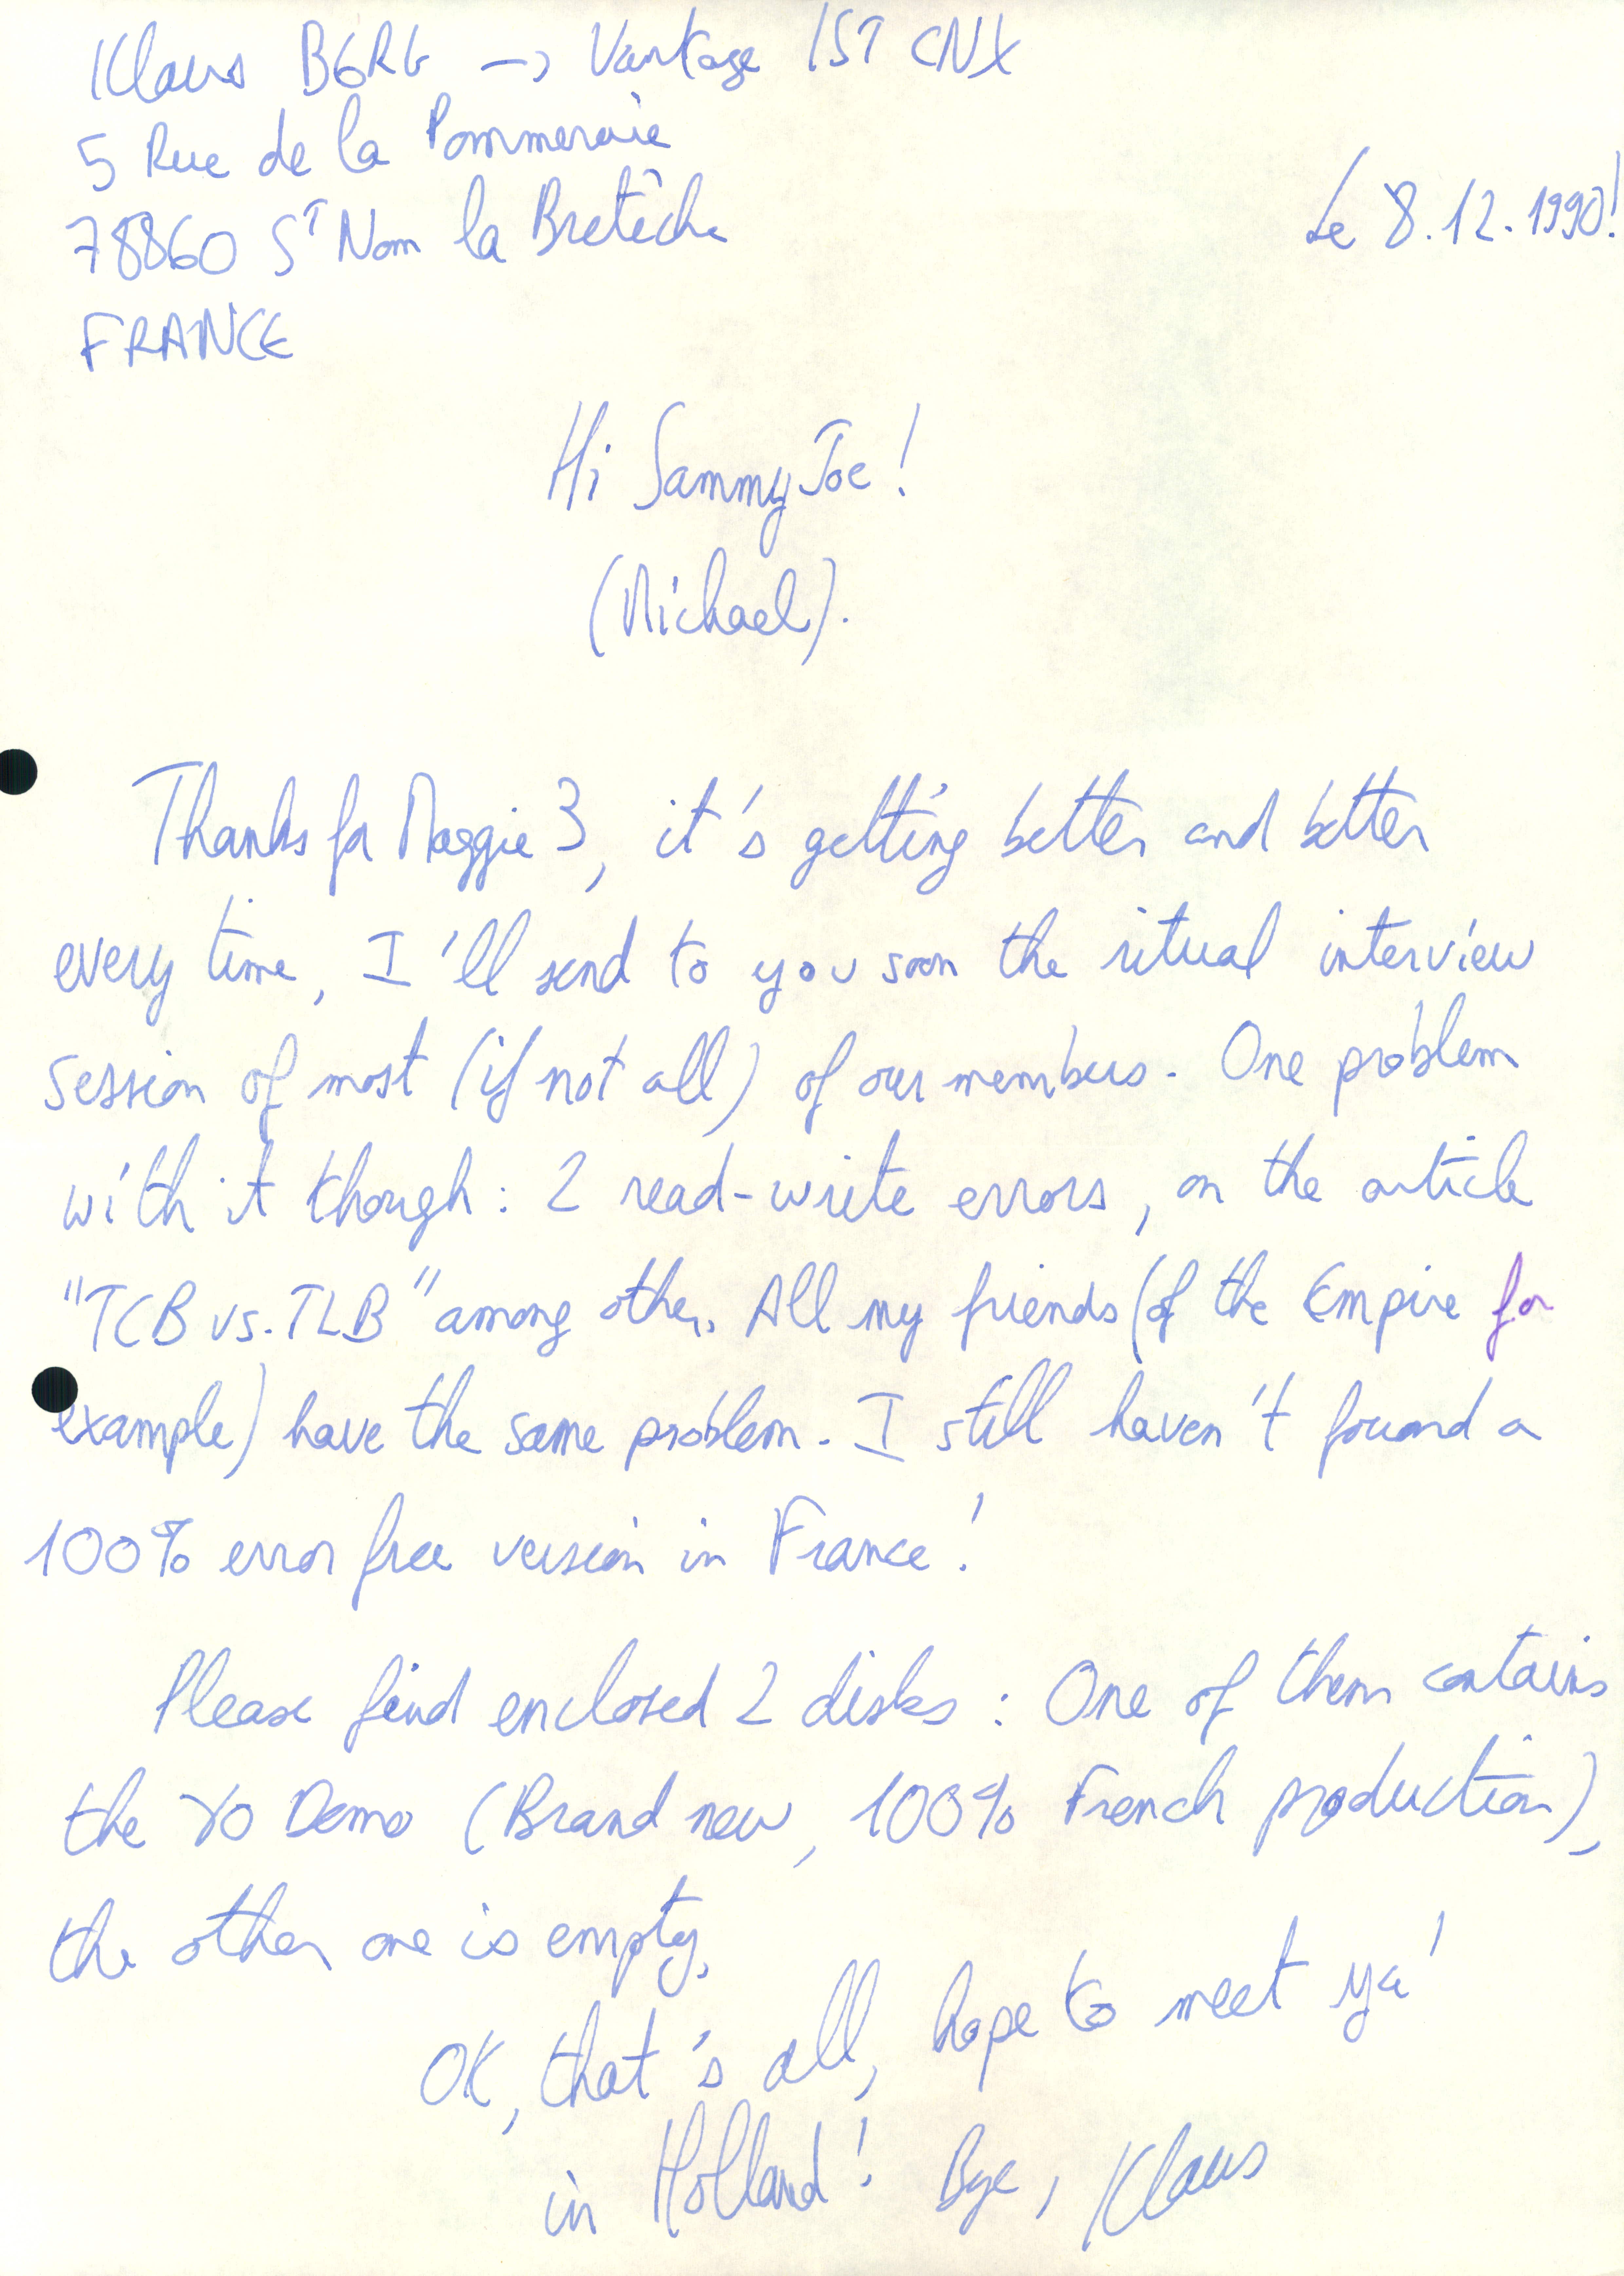 Klaus BERG -> Vantage ST CNX
5 Rue de la Pommeraie
78860 St Nom la Bretèche
FRANCE
Le 8.12.1990!
Hi Sammy Joe!
(Michael).
Thanks for Maggie 3, it's getting better and better
every time, I'll send to you soon the ritual interview
session of most (if not all) of our members. One problem
with it though: 2 read-write errors, on the article
"TCB vs. TLB" among other. All my friends (of the Empire for
example) have the same problem. I still haven't found a
100% error free version in France!
Please find enclosed 2 disks: One of them contains
the YO Demo (Brand new, 100% French production),
the other one is empty.
OK, that's all, hope to meet ya'
in Holland! Bye, Klaus